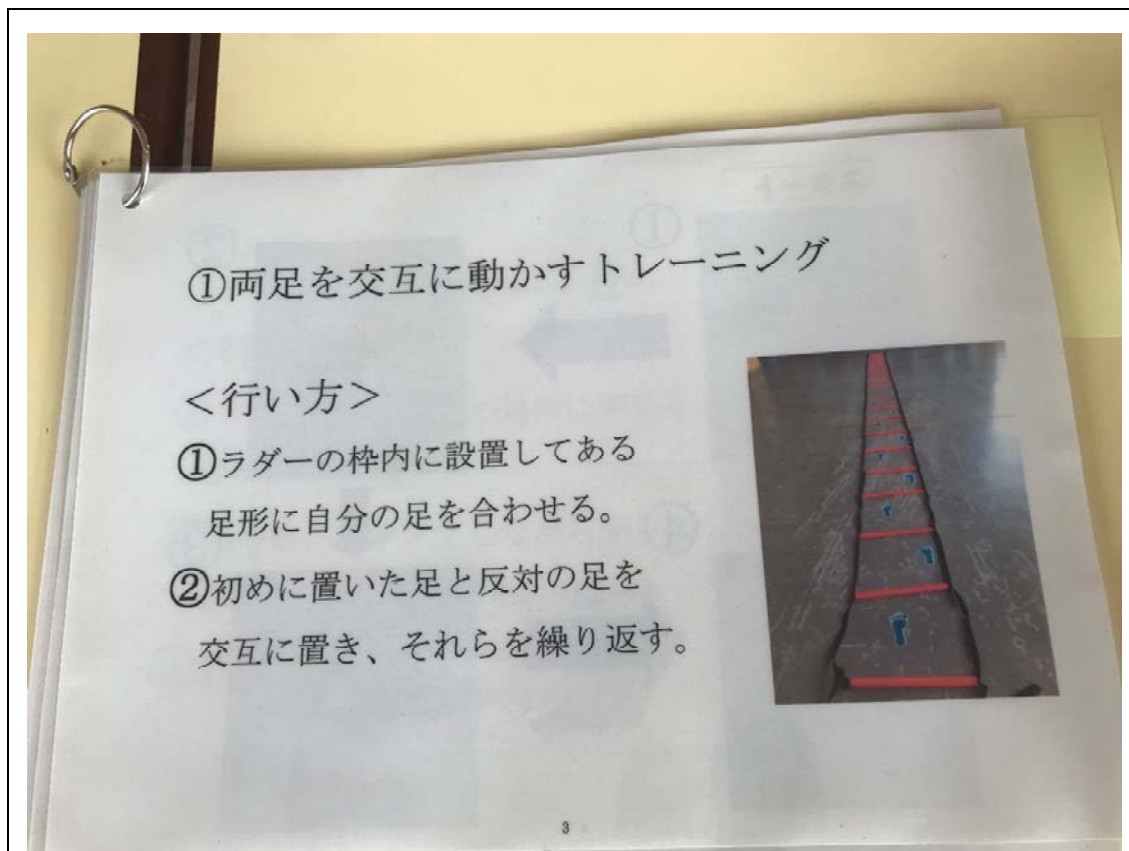 ①両足を交互に動かすトレーニング
＜行い方＞
①ラダーの枠内に設置してある
足形に自分の足を合わせる。
②初めに置いた足と反対の足を
交互に置き、それらを繰り返す。
3